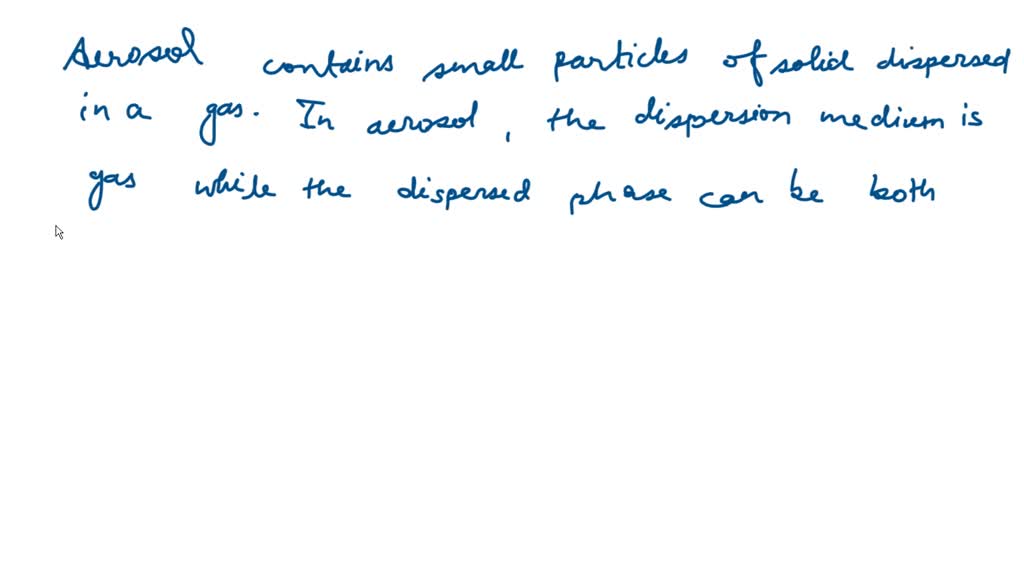 Aerosol contains small particles of solid dispersed
in a gas. In aerosol, the dispersion medium is
gas while the dispersed phase can be both